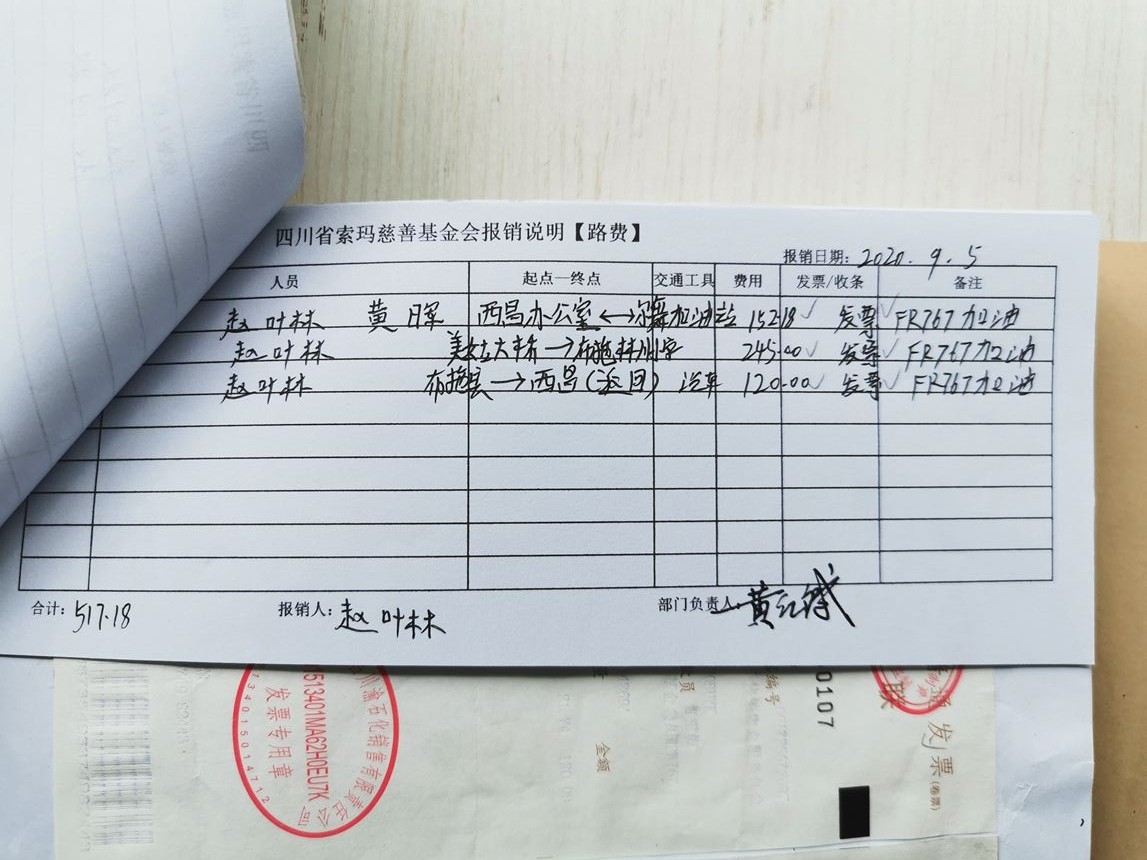 四川省索玛慈善基金会报销说明【路费】
报销日期：2020.9.5
人员 起点—终点 交通工具 费用 发票/收条 备注
赵叶林 黄 西昌办公室↔ 152.18✓ 发票✓ FR767加油
赵叶林 →布拖 245.00✓ 发票✓ FR767加油
赵叶林 布拖县→西昌(返回) 汽车 120.00✓ 发票✓ FR767加油
合计：517.18 报销人：赵叶林 部门负责人：黄红
川渝石化销售有限责任公司
513401MA62H0EU7K
发票专用章
734015014712
金额
员
编号
0107
联
通发票(卷票)